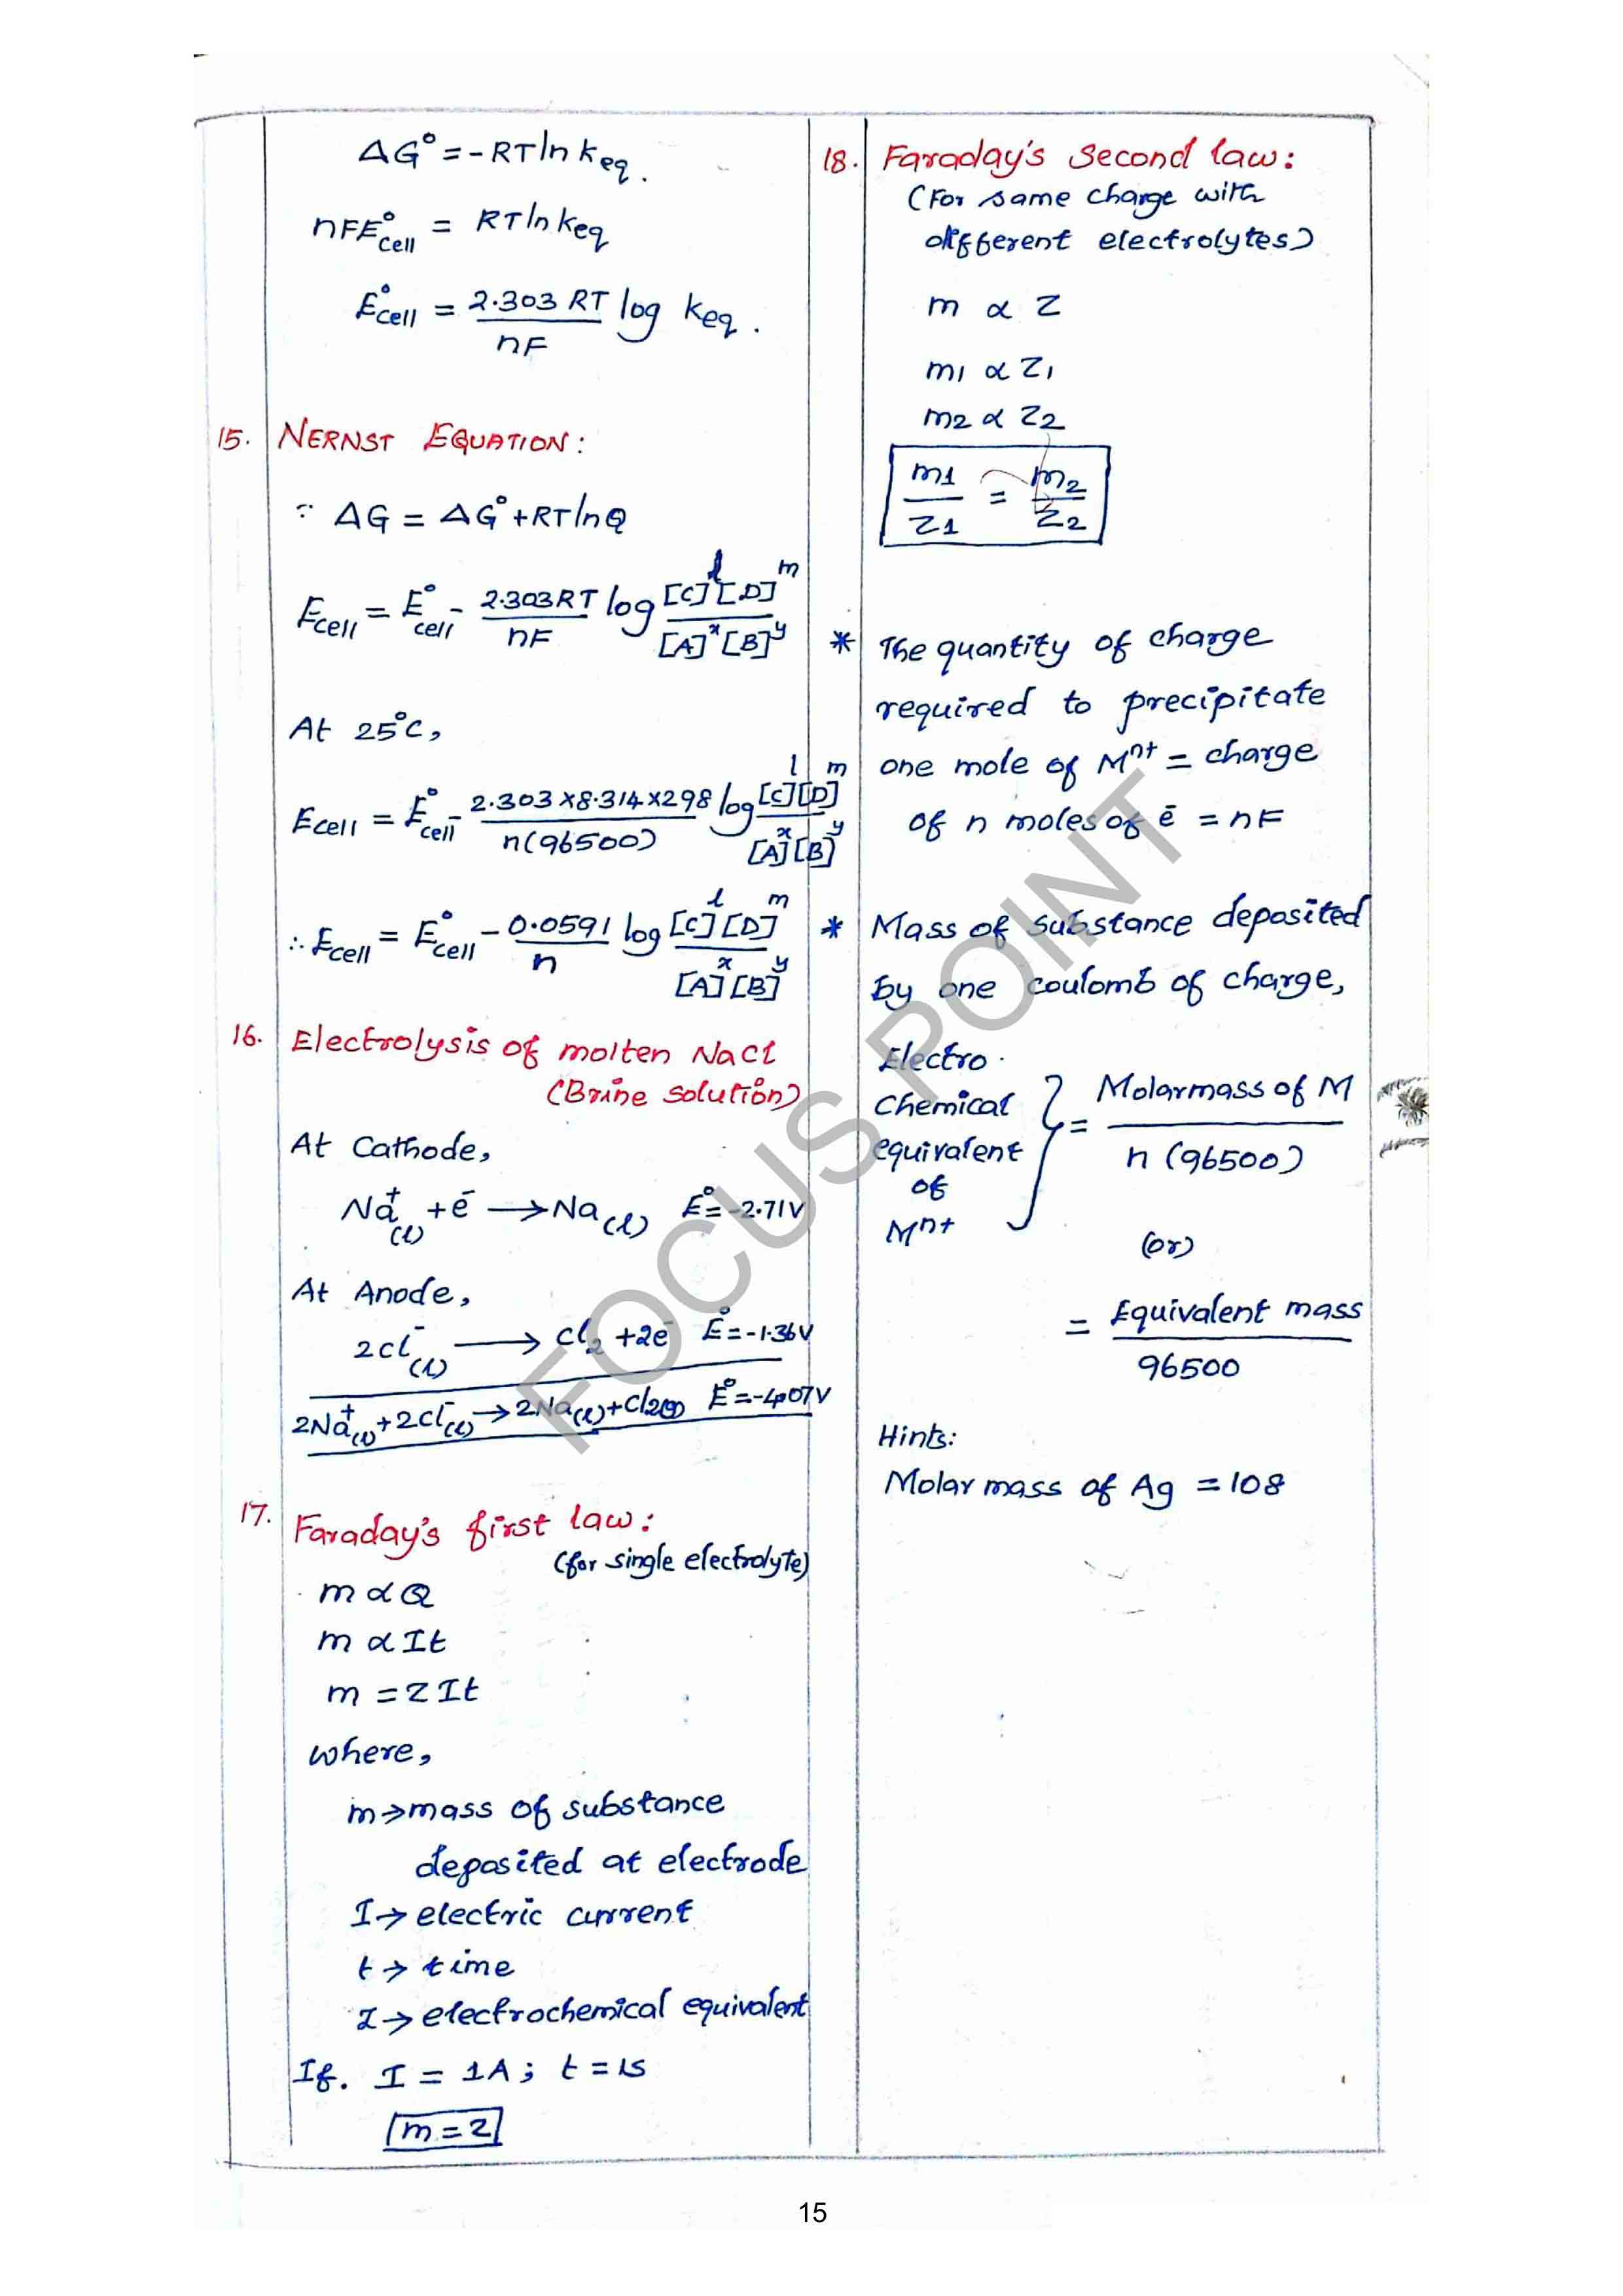 ΔG° = -RT ln keq.
nFE°cell = RT ln keq
E°cell = 2.303 RT / nF log keq.
15. NERNST EQUATION:
∵ ΔG = ΔG° + RT ln Q
Ecell = E°cell - 2.303RT / nF log [C]^l [D]^m / [A]^x [B]^y
At 25°C,
Ecell = E°cell - 2.303 × 8.314 × 298 / n(96500) log [C]^l [D]^m / [A]^x [B]^y
∴ Ecell = E°cell - 0.0591 / n log [C]^l [D]^m / [A]^x [B]^y
16. Electrolysis of molten NaCl
(Brine solution)
At Cathode,
Na⁺(l) + e⁻ → Na(l) E° = -2.71V
At Anode,
2Cl⁻(l) → Cl₂ + 2e⁻ E° = -1.36V
2Na⁺(l) + 2Cl⁻(l) → 2Na(l) + Cl₂(g) E° = -4.07V
17. Faraday's first law:
(for single electrolyte)
m ∝ Q
m ∝ It
m = ZIt
where,
m → mass of substance
deposited at electrode
I → electric current
t → time
Z → electrochemical equivalent
If. I = 1A ; t = 1s
m = Z
18. Faraday's second law:
(For same charge with
different electrolytes)
m ∝ Z
m1 ∝ Z1
m2 ∝ Z2
m1 / Z1 = m2 / Z2
* The quantity of charge
required to precipitate
one mole of Mⁿ⁺ = charge
of n moles of ē = nF
* Mass of substance deposited
by one coulomb of charge,
Electro
Chemical
equivalent
of
Mⁿ⁺ } = Molarmass of M / n (96500)
(or)
= Equivalent mass / 96500
Hints:
Molar mass of Ag = 108
FOCUS POINT
15